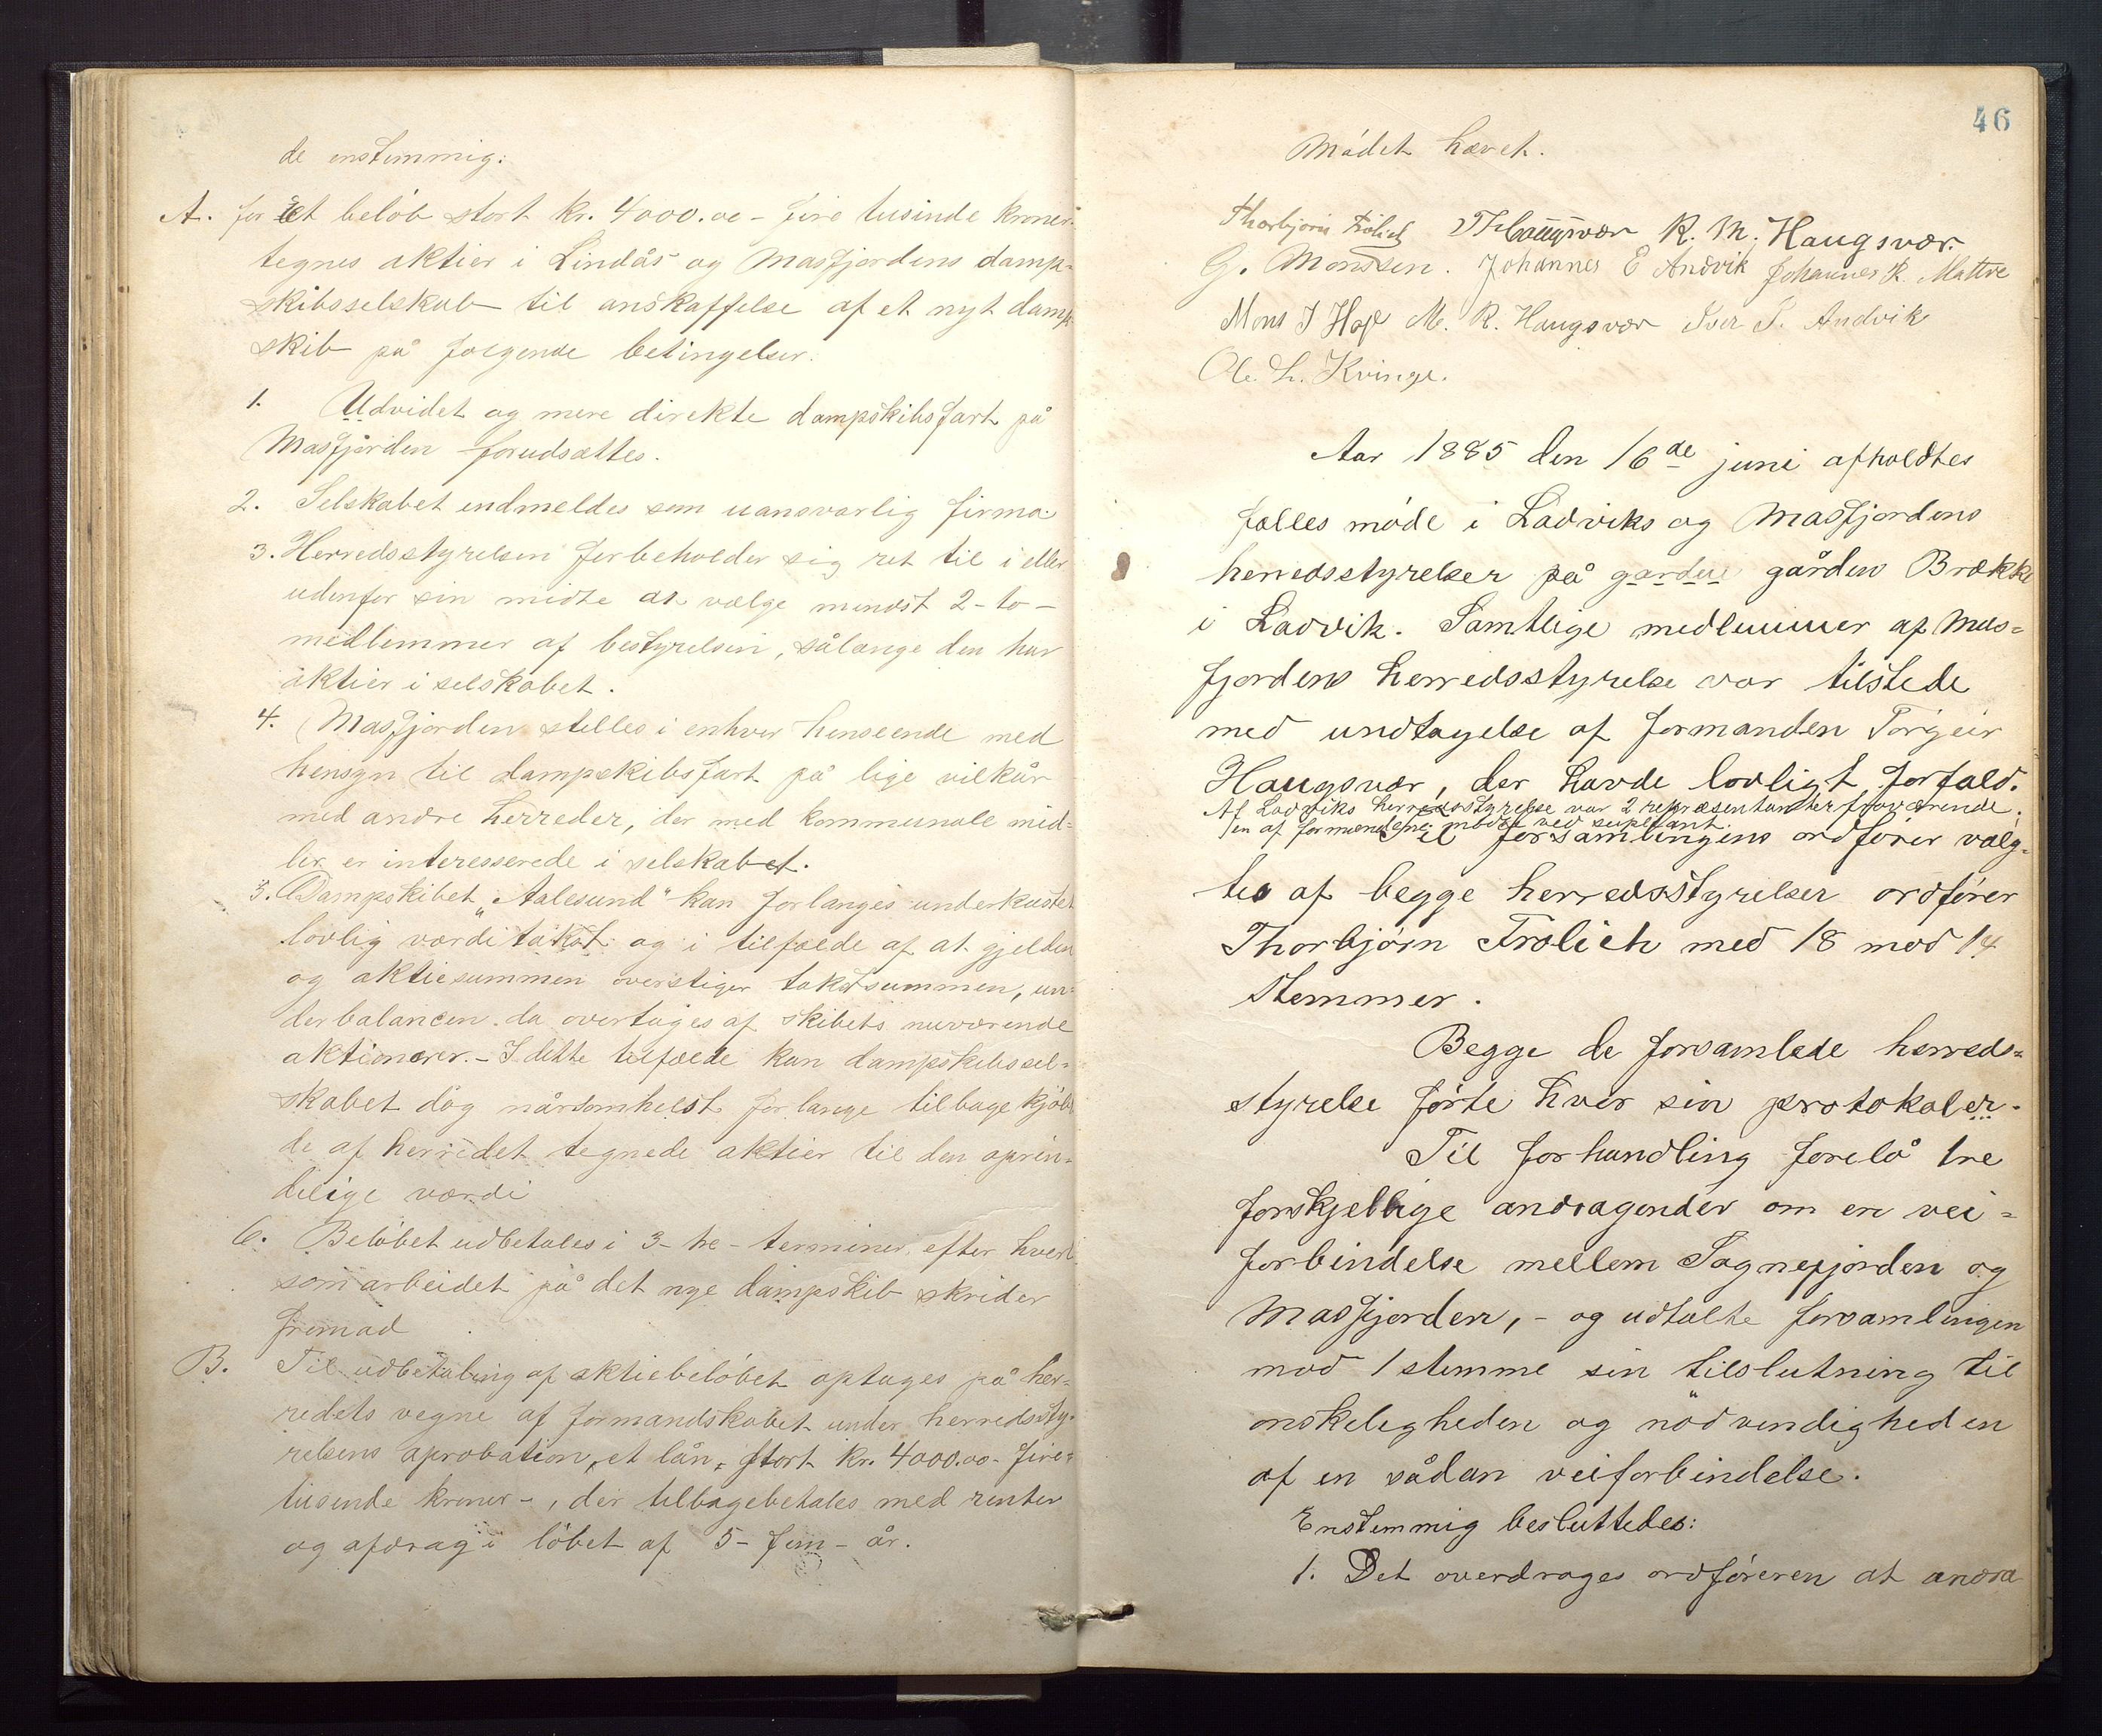 de enstemmig:
A. for Et beløb stort kr. 4000.00 - fire tusinde kroner -
tegnes aktier i Lindås og Masfjordens damp-
skibsselskab til anskaffelse af et nyt damp-
skib på følgende betingelser.
1. Udvidet og mere direkte dampskibsfart på
Masfjorden forudsættes.
2. Selskabet indmeldes som uansvarlig firma.
3. Herredsstyrelsen forbeholder sig ret til i eller
udenfor sin midte at vælge mindst 2 - to -
medlemmer af bestyrelsen, sålænge den har
aktier i selskabet.
4. Masfjorden stilles i enhver henseende med
hensyn til dampskibsfart på lige vilkår
med andre herreder, der med kommunale mid-
ler er interesserede i selskabet.
5. Dampskibet „Aalesund" kan forlanges underkastet
lovlig værditakst og i tilfælde af at gjelden
og aktiesummen overstiger takstsummen, un-
derbalancen da overtages af skibets nuværende
aktionærer. - I dette tilfælde kan dampskibssel-
skabet dog nårsomhelst forlange tilbagekjøbt
de af herredet tegnede aktier til den oprin-
delige værdi
6. Beløbet udbetales i 3 - tre - terminer efter hvert
som arbeidet på det nye dampskib skrider
fremad.
B. Til udbetaling af aktiebeløbet optages på her-
redets vegne af formandskabet under herredssty-
relsens aprobation, et lån, stort kr. 4000.00 - fire-
tusinde kroner -, der tilbagebetales med renter
og afdrag i løbet af 5 - fem - år.
46
Mødet hævet.
Thorbjørn Frølich T Haugsvær R. M. Haugsvær.
G. Monssen. Johannes E Andvik Johannes R. Mattre
Mons J Hope M. R. Haugsvær Iver I. Andvik
Ole L. Kvinge.
Aar 1885 den 16de juni afholdtes
fælles møde i Ladviks og Masfjordens
herredsstyrelser på garden gården Brække
i Ladvik. Samtlige medlemmer af Mas-
fjordens herredsstyrelse var tilstede
med undtagelse af formanden Torgeir
Haugsvær, der havde lovligt forfald.
Af Ladviks herredsstyrelse var 2 repræsentanter fraværende.
1 en af formændene mødte ved supleant.
Til forsamlingens ordfører valg-
tes af begge herredsstyrelser ordfører
Thorbjørn Frølich med 18 mod 14
stemmer.
Begge de forsamlede herreds-
styrelse førte hver sin protokoler.
Til forhandling forelå tre
forskjellige andragender om en vei-
forbindelse mellem Sognefjorden og
Masfjorden, - og udtalte forsamlingen
mod 1 stemme sin tilslutning til
ønskeligheden og nødvendigheden
af en sådan veiforbindelse.
Enstemmig besluttedes:
1. Det overdrages ordføreren at andra